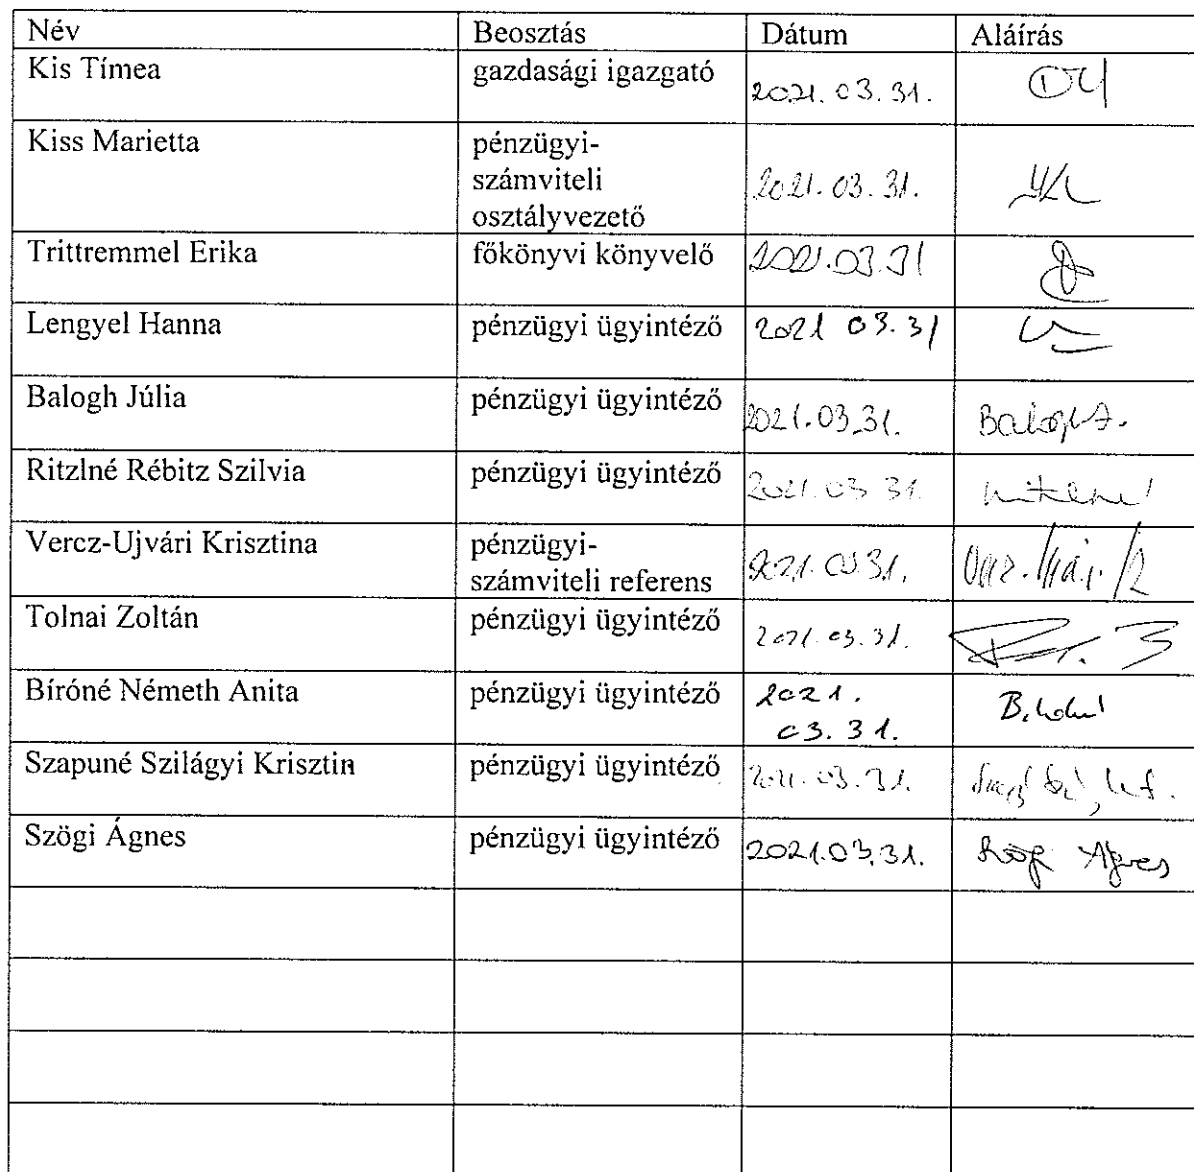 Név Beosztás Dátum Aláírás
Kis Tímea gazdasági igazgató 2021. 03. 31.
Kiss Marietta pénzügyi-
számviteli 2021. 03. 31.
osztályvezető
Trittremmel Erika főkönyvi könyvelő 2021.03.31
Lengyel Hanna pénzügyi ügyintéző 2021 03.31
Balogh Júlia pénzügyi ügyintéző 2021.03.31. Balogh J.
Ritzlné Rébitz Szilvia pénzügyi ügyintéző 2021.03 31.
Vercz-Ujvári Krisztina pénzügyi-
számviteli referens 2021.03.31.
Tolnai Zoltán pénzügyi ügyintéző 2021.03.31.
Bíróné Németh Anita pénzügyi ügyintéző 2021.
03.31.
Szapuné Szilágyi Krisztin pénzügyi ügyintéző 2021.03.31.
Szögi Ágnes pénzügyi ügyintéző 2021.03.31. Szögi Ágnes